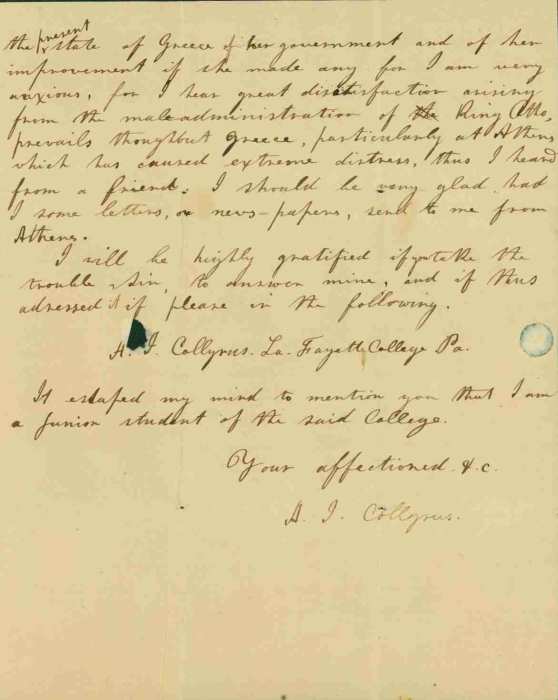 present
the state of Greece of her government and of her
improvement if she made any for I am very
anxious, for I hear great disatisfaction arising
from the maleadministration of the King Otto,
prevails thoughout Greece, particularly at Athens
which has caused extreme distress, thus I heard
from a friend. I should be very glad, had
I some letters, or news-papers, send to me from
Athens.
I will be highly gratified if you take the
trouble Sir, to answer mine, and if thus
adressed it if please in the following.
A. I. Collyrus. La. Fayette College Pa.
It escaped my mind to mention you that I am
a junior student of the said College.
Your affectioned &c.
A. I. Collyrus.